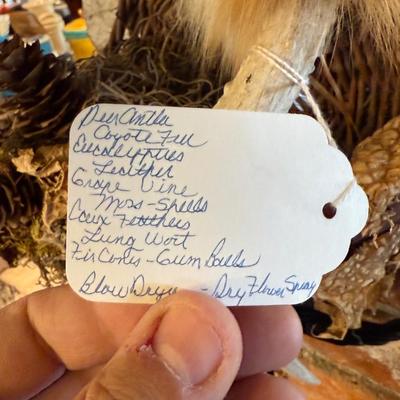 Deer Antler
Coyote Fur
Eucalyptus
Leather
Grape Vine
Moss - Shells
Faux Feathers
Lung Wort
Fir Cones - Gum Balls
Blow Dryer - Dry Flower Spray